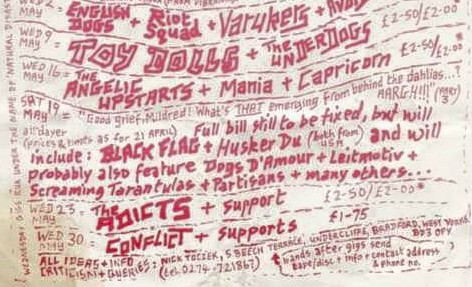 WED 2 MAY = ENGLISH DOGS + Riot Squad + Varukers + Avoid £2-50/£2-00*
WED 9 MAY = TOY DOLLS + THE UNDERDOGS £2-50/£2-00*
WED 16 MAY = THE ANGELIC UPSTARTS + Mania + Capricorn £2-50/£2-00*
SAT 19 MAY = "Good grief, Mildred! What's THAT emerging from behind the dahlias...? AARGH!!!" (PART 3)
all-dayer (prices & limits as for 21 APRIL) Full bill still to be fixed, but will
include: BLACK FLAG + Husker Du (both from USA) and will
probably also feature Dogs D'Amour + Leitmotiv +
Screaming Tarantulas + Partisans + many others...
WED 23 MAY = The ADICTS + support £2-50/£2-00*
WED 30 MAY = CONFLICT + supports £1-75
ALL IDEAS + INFO + CRITICISM + QUERIES: NICK TOCZEK, 5 BEECH TERRACE, UNDERCLIFFE, BRADFORD, WEST YORKS, BD3 0PY
(tel. 0274-721867) (bands after gigs send tape/disc + info + contact address & phone no.
WEDNESDAY GIGS RUN UNDER THE NAME OF 'NATURAL DISAST